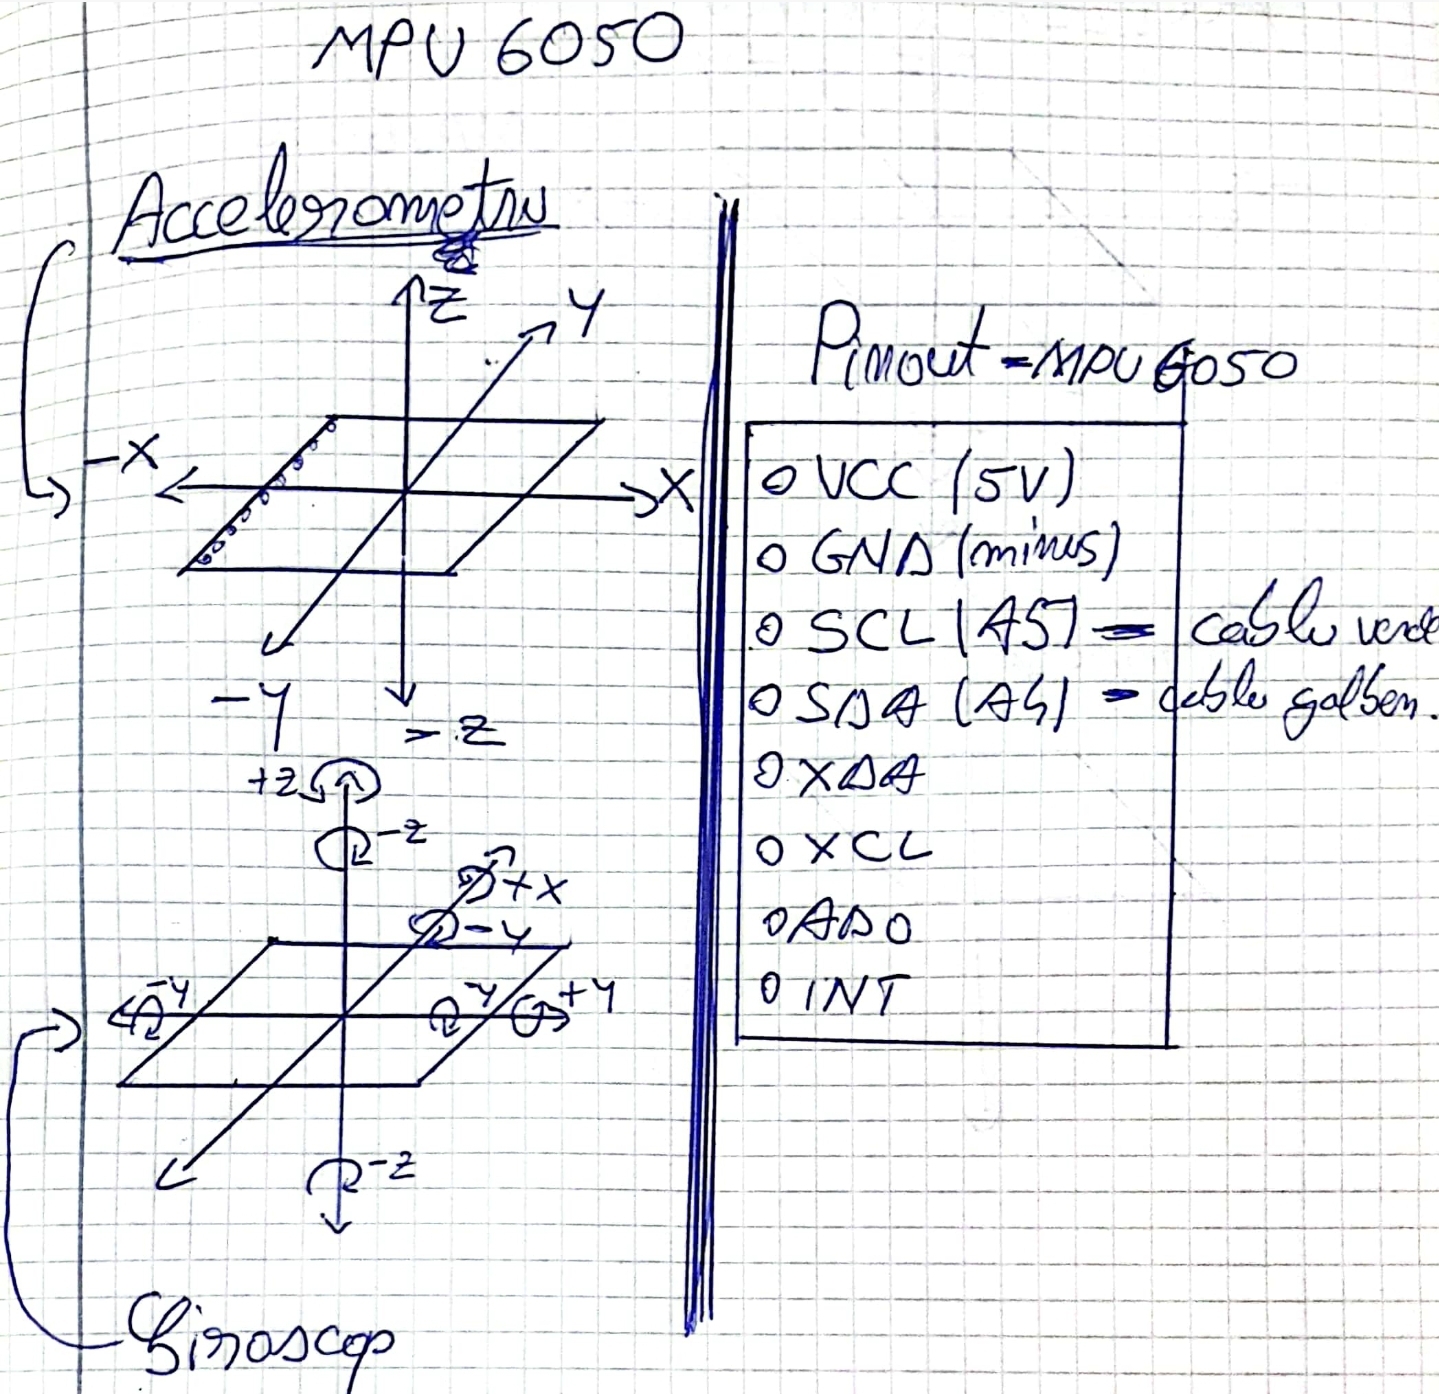 MPU 6050
Accelerometru
Z
Y
-X
X
-Y
-Z
+Z
-Z
+X
-Y
-Y
-Y
+Y
-Z
Giroscop
Pinout - MPU 6050
o VCC (5V)
o GND (minus)
o SCL (A5) - cablu verde
o SDA (A4) - cablu galben.
o XDA
o XCL
o ADO
o INT